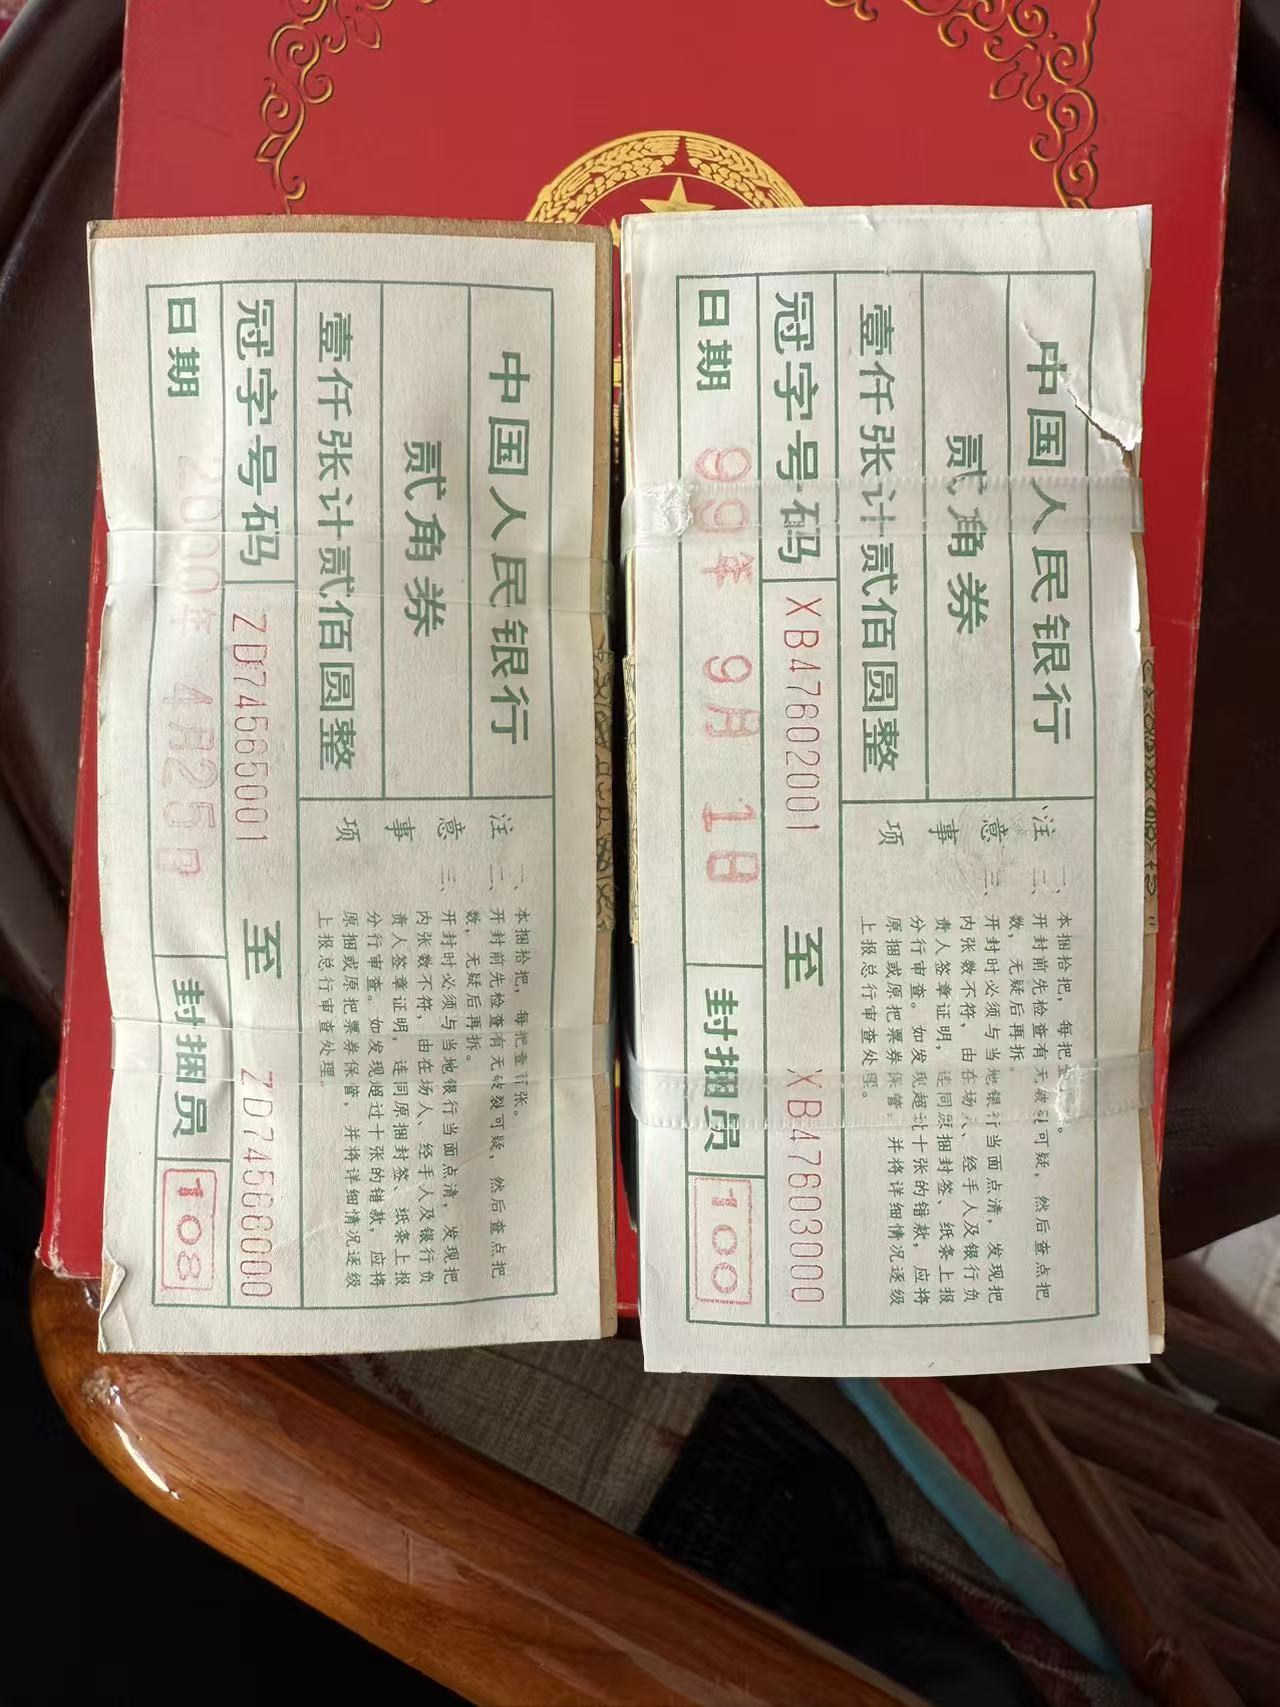 中国人民银行
贰角券
壹仟张计贰佰圆整
冠字号码 ZD74565001 至 ZD74566000
日期 2000年 4月25日 封捆员 108
注意事项
一、本捆拾把，每把壹百张。
二、开封前先检查有无破裂可疑，然后查点把
数，无疑后再拆。
三、开封时必须与当地银行当面点清，发现把
内张数不符，由在场人、经手人及银行负
责人签章证明，连同原捆封签、纸条上报
分行审查。如发现超过十张的错款，应将
原捆或原把票券保管，并将详细情况逐级
上报总行审查处理。
中国人民银行
贰角券
壹仟张计贰佰圆整
冠字号码 XB47602001 至 XB47603000
日期 99年 9月 1日 封捆员 100
注意事项
一、本捆拾把，每把壹
二、开封前先检查有无破裂可疑，然后查点把
数，无疑后再拆。
三、开封时必须与当地银行当面点清，发现把
内张数不符，由在场人、经手人及银行负
责人签章证明，连同原捆封签、纸条上报
分行审查。如发现超过十张的错款，应将
原捆或原把票券保管，并将详细情况逐级
上报总行审查处理。